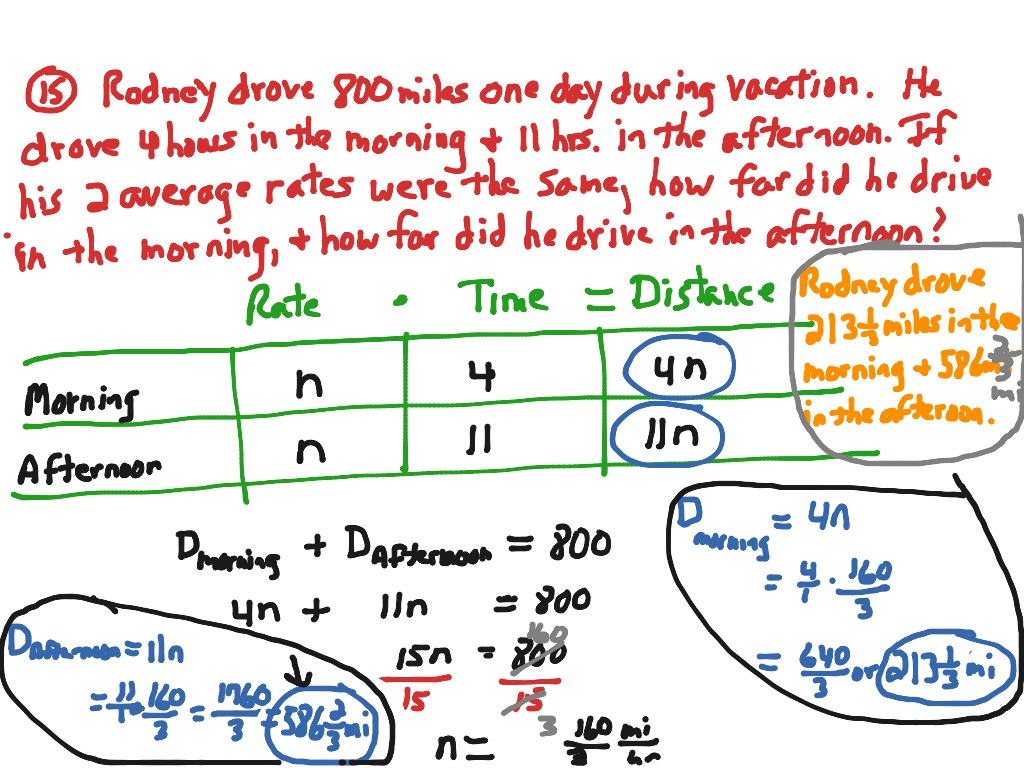 15 Rodney drove 800 miles one day during vacation. He
drove 4 hours in the morning + 11 hrs. in the afternoon. If
his 2 average rates were the same, how far did he drive
in the morning, + how far did he drive in the afternoon?
Rate · Time = Distance
Morning n 4 4n
Afternoon n 11 11n
Rodney drove
213 1/3 miles in the
morning + 586 2/3 mi
in the afternoon.
D morning + D Afternoon = 800
4n + 11n = 800
15n/15 = 800/15
160
3
n = 160/3 mi/hr
D morning = 4n
= 4/1 · 160/3
= 640/3 or 213 1/3 mi
D Afternoon = 11n
= 11/1 · 160/3 = 1760/3 = 586 2/3 mi